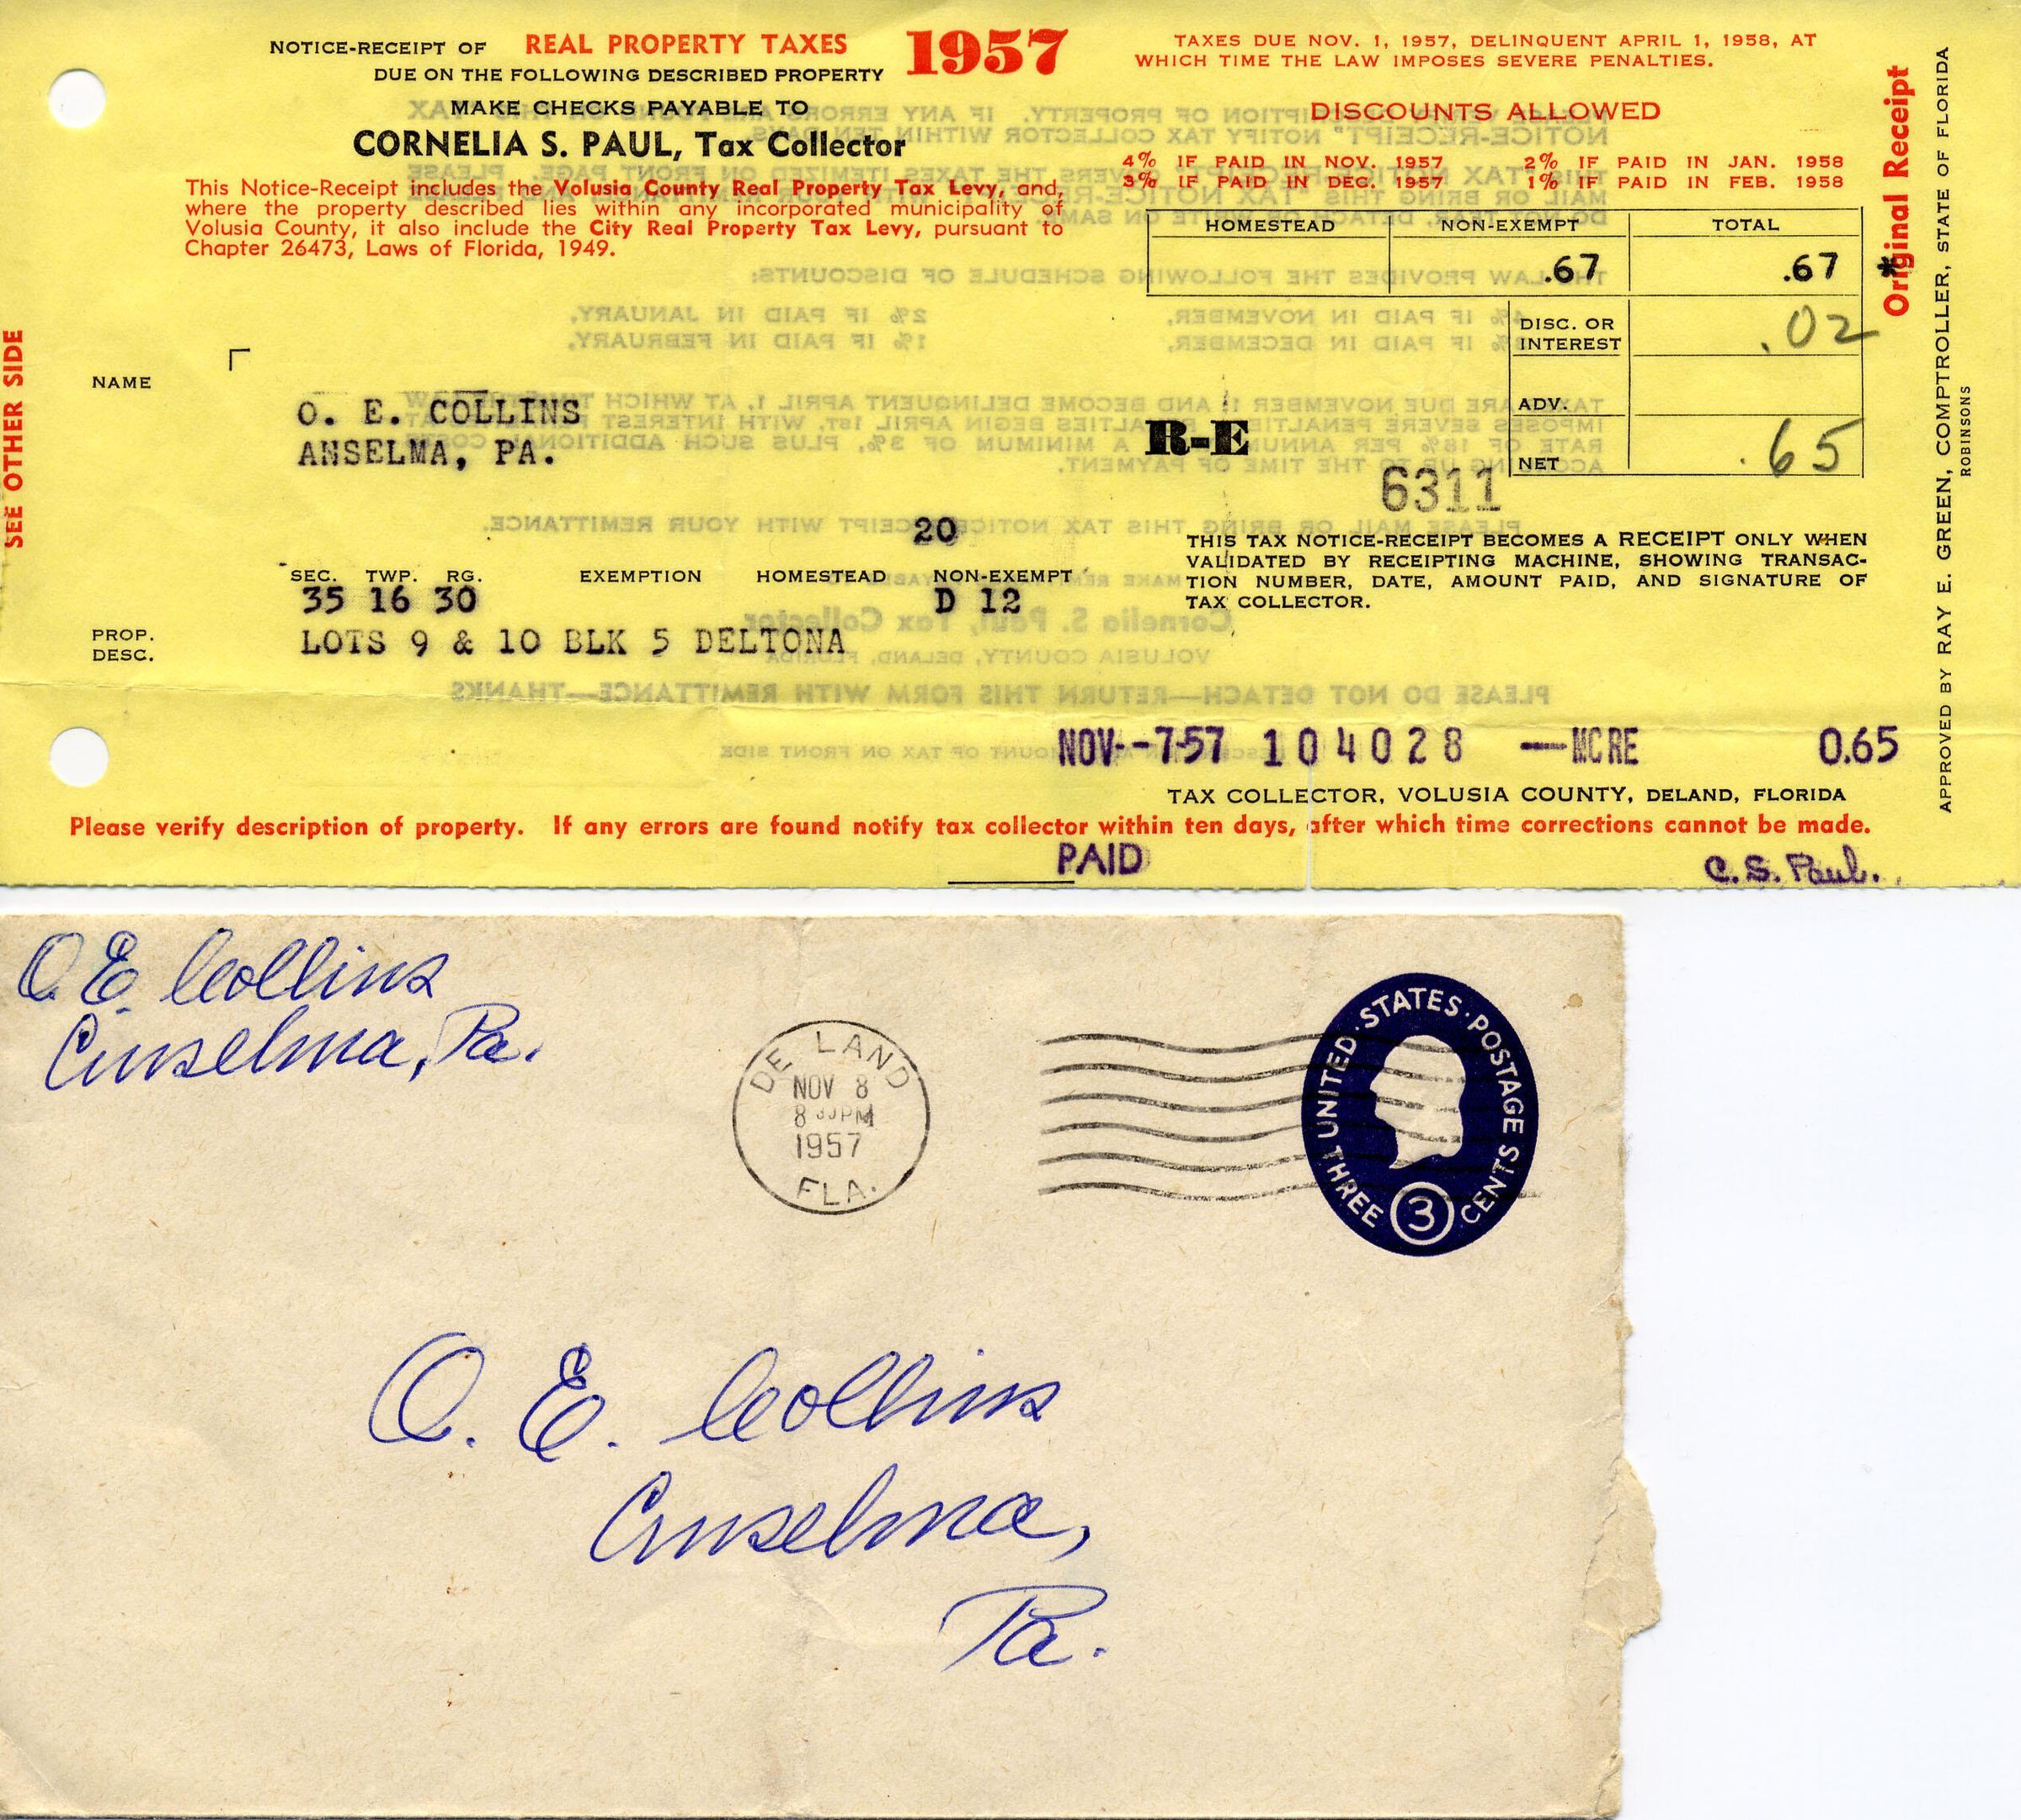 NOTICE-RECEIPT OF REAL PROPERTY TAXES 1957
DUE ON THE FOLLOWING DESCRIBED PROPERTY
MAKE CHECKS PAYABLE TO
CORNELIA S. PAUL, Tax Collector
This Notice-Receipt includes the Volusia County Real Property Tax Levy, and,
where the property described lies within any incorporated municipality of
Volusia County, it also include the City Real Property Tax Levy, pursuant to
Chapter 26473, Laws of Florida, 1949.
TAXES DUE NOV. 1, 1957, DELINQUENT APRIL 1, 1958, AT
WHICH TIME THE LAW IMPOSES SEVERE PENALTIES.
DISCOUNTS ALLOWED
4% IF PAID IN NOV. 1957 2% IF PAID IN JAN. 1958
3% IF PAID IN DEC. 1957 1% IF PAID IN FEB. 1958
HOMESTEAD NON-EXEMPT TOTAL
.67 .67
DISC. OR
INTEREST .02
ADV.
NET .65
* Original Receipt
APPROVED BY RAY E. GREEN, COMPTROLLER, STATE OF FLORIDA
ROBINSONS
SEE OTHER SIDE
NAME
O. E. COLLINS
ANSELMA, PA.
R-E
6311
20
SEC. TWP. RG. EXEMPTION HOMESTEAD NON-EXEMPT
35 16 30 D 12
PROP.
DESC.
LOTS 9 & 10 BLK 5 DELTONA
THIS TAX NOTICE-RECEIPT BECOMES A RECEIPT ONLY WHEN
VALIDATED BY RECEIPTING MACHINE, SHOWING TRANSAC-
TION NUMBER, DATE, AMOUNT PAID, AND SIGNATURE OF
TAX COLLECTOR.
NOV--7-57 104028 —MCRE 0.65
TAX COLLECTOR, VOLUSIA COUNTY, DELAND, FLORIDA
Please verify description of property. If any errors are found notify tax collector within ten days, after which time corrections cannot be made.
PAID
C. S. Paul.
O. E. Collins
Anselma, Pa.
DE LAND
NOV 8
PM
1957
FLA.
UNITED·STATES·POSTAGE
THREE 3 CENTS
O. E. Collins
Anselma,
Pa.